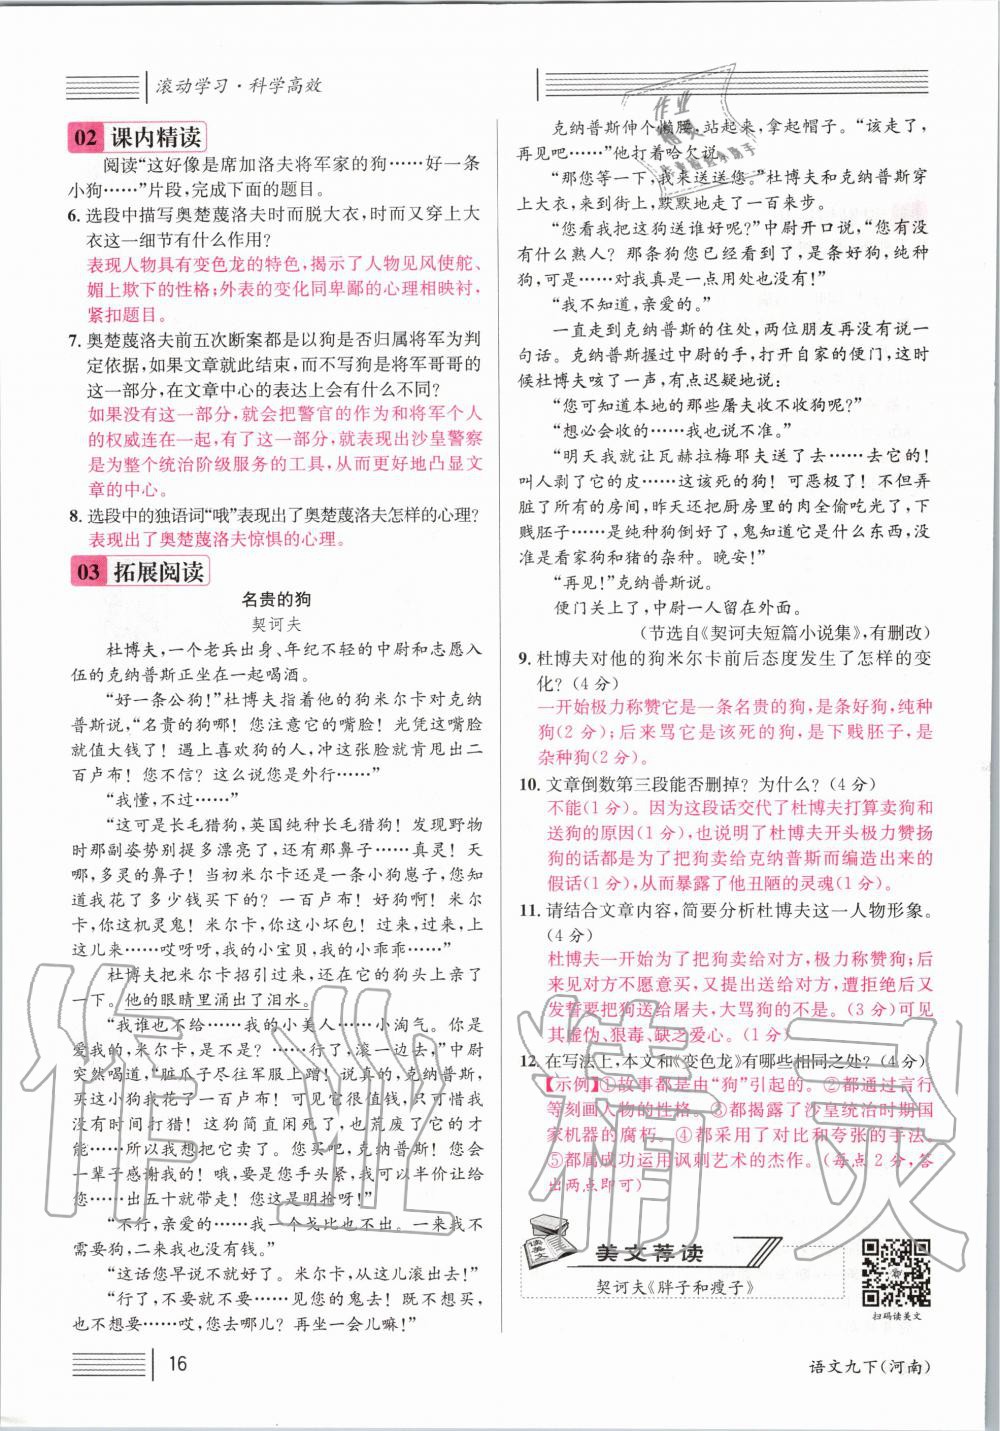 滚动学习·科学高效
02 课内精读
阅读“这好像是席加洛夫将军家的狗……好一条
小狗……”片段,完成下面的题目。
6. 选段中描写奥楚蔑洛夫时而脱大衣,时而又穿上大
衣这一细节有什么作用?
表现人物具有变色龙的特色,揭示了人物见风使舵、
媚上欺下的性格;外表的变化同卑鄙的心理相映衬,
紧扣题目。
7. 奥楚蔑洛夫前五次断案都是以狗是否归属将军为判
定依据,如果文章就此结束,而不写狗是将军哥哥的
这一部分,在文章中心的表达上会有什么不同?
如果没有这一部分,就会把警官的作为和将军个人
的权威连在一起,有了这一部分,就表现出沙皇警察
是为整个统治阶级服务的工具,从而更好地凸显文
章的中心。
8. 选段中的独语词“哦”表现出了奥楚蔑洛夫怎样的心理?
表现出了奥楚蔑洛夫惊惧的心理。
03 拓展阅读
名贵的狗
契诃夫
杜博夫,一个老兵出身、年纪不轻的中尉和志愿入
伍的克纳普斯正坐在一起喝酒。
“好一条公狗!”杜博夫指着他的狗米尔卡对克纳
普斯说,“名贵的狗哪! 您注意它的嘴脸! 光凭这嘴脸
就值大钱了! 遇上喜欢狗的人,冲这张脸就肯甩出二
百卢布! 您不信? 这么说您是外行……”
“我懂,不过……”
“这可是长毛猎狗,英国纯种长毛猎狗! 发现野物
时的那副姿势别提多漂亮了,还有那鼻子……真灵! 天
哪,多灵的鼻子! 当初米尔卡还是一条小狗崽子,您知
道我花了多少钱买下的? 一百卢布! 好狗啊! 米尔
卡,你这机灵鬼! 米尔卡,你这小坏包! 过来,过来,上
这儿来……哎呀呀,我的小宝贝,我的小乖乖……”
杜博夫把米尔卡招引过来,还在它的狗头上亲了
一下。他的眼睛里涌出了泪水。
“我谁也不给……我的小美人……小淘气。你是
爱我的,米尔卡,是不是? ……行了,滚一边去,”中尉
突然喝道,“脏爪子尽往军服上蹭! 说真的,克纳普斯,
买这小狗我花了一百卢布! 可见它很值钱,只可惜我
没有时间打猎! 这狗简直闲死了,也荒废了它的才
能……所以我想把它卖了。您买吧,克纳普斯! 您会
一辈子感谢我的! 哦,要是您手头紧,我可以半价让给
您……出五十就带走! 您这是明抢呀!”
“不行,亲爱的……我一个戈比也不出。一来我不
需要狗,二来我也没有钱。”
“这话您早说不就好了。米尔卡,从这儿滚出去!”
“行了,不要就不要……见您的鬼去! 既不要买,
也不要……哎,您去哪儿? 再坐一会儿!”
克纳普斯伸个懒腰,站起来,拿起帽子。“该走了,
再见吧……”他打着哈欠说。
“那您等一下,我来送送您。”杜博夫和克纳普斯穿
上大衣,来到街上,默默地走了一百来步。
“您看我把这狗送谁好呢?”中尉开口说,“您有没
有什么熟人? 那条狗您已经看到了,是条好狗,纯种
狗,可是……对我真是一点用处也没有!”
“我不知道,亲爱的。”
一直走到克纳普斯的住处,两位朋友再没有说一
句话。克纳普斯握过中尉的手,打开自家的便门,这时
候杜博夫咳了一声,有点迟疑地说:
“您可知道本地的那些屠夫收不收狗呢?”
“想必会收的……我也说不准。”
“明天我就让瓦赫拉梅耶夫送……去……去它的!
叫人剥了它的皮……这该死的狗! 可恶极了! 不但弄
脏了所有的房间,昨天还把厨房里的肉全偷吃光了,下
贱胚子……是纯种狗倒好了,鬼知道它是什么东西,没
准是看家狗和猪的杂种。晚安!”
“再见!”克纳普斯说。
便门关上了,中尉一人留在外面。
(节选自《契诃夫短篇小说集》,有删改)
9. 杜博夫对他的狗米尔卡前后态度发生了怎样的变
化?(4 分)
一开始极力称赞它是一条名贵的狗,是条好狗,纯种
狗(2 分);后来骂它是该死的狗,是下贱胚子,是
杂种狗(2 分)。
10. 文章倒数第三段能否删掉? 为什么?(4 分)
不能(1 分)。因为这段话交代了杜博夫打算卖狗和
送狗的原因(1 分),也说明了杜博夫开头极力赞扬
狗的话都是为了把狗卖给克纳普斯而编造出来的
假话(1 分),从而暴露了他丑陋的灵魂(1 分)。
11. 请结合文章内容,简要分析杜博夫这一人物形象。
(4 分)
杜博夫一开始为了把狗卖给对方,极力称赞狗,后
来见对方不愿意买,又提出送给对方,遭拒绝后又
发誓要把狗送给屠夫,大骂狗的不是。(3 分)可见
其虚伪、狠毒、缺乏爱心。(1 分)
12. 在写法上,本文和《变色龙》有哪些相同之处?(4 分)
【示例】①故事都是由“狗”引起的。②都通过言行
等刻画人物的性格。③都揭示了沙皇统治时期国
家机器的腐朽。④都采用了对比和夸张的手法。
⑤都属成功运用讽刺艺术的杰作。(每点 2 分,答
出两点即可)
读美文
美文荐读
契诃夫《胖子和瘦子》
扫码读美文
16
语文九下(河南)
作业精灵